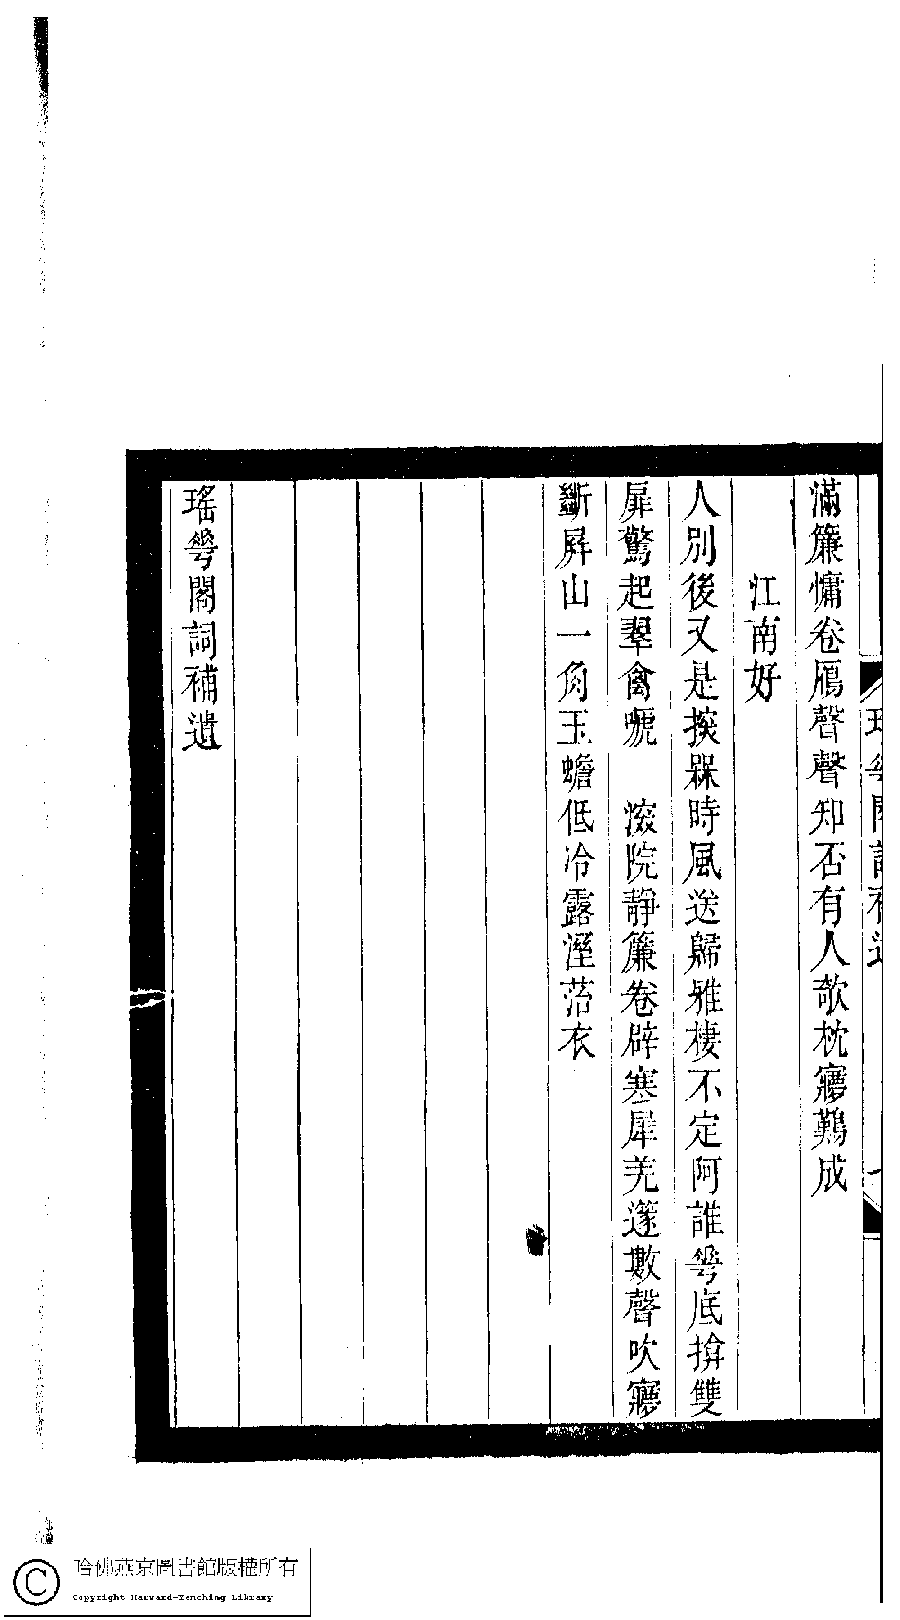 滿簾慵卷鴈聲聲知否有人欹枕寱鷄成
江南好
人別後又是揬槑時風送歸雅棲不定阿誰甹底揜雙
扉驚起羣禽嗁　滾院靜簾卷辟寒犀羌邃數聲吹寱
斷屛山一角玉蟾低冷露溼菭衣
瑤甹閣詞補遺
哈佛燕京圖書館版權所有
Copyright Harvard-Yenching Library